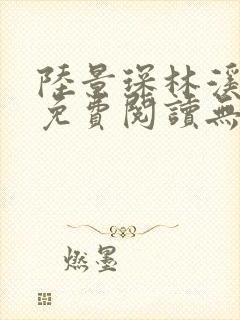 陸景琛林溪
免費閱讀無
燃墨